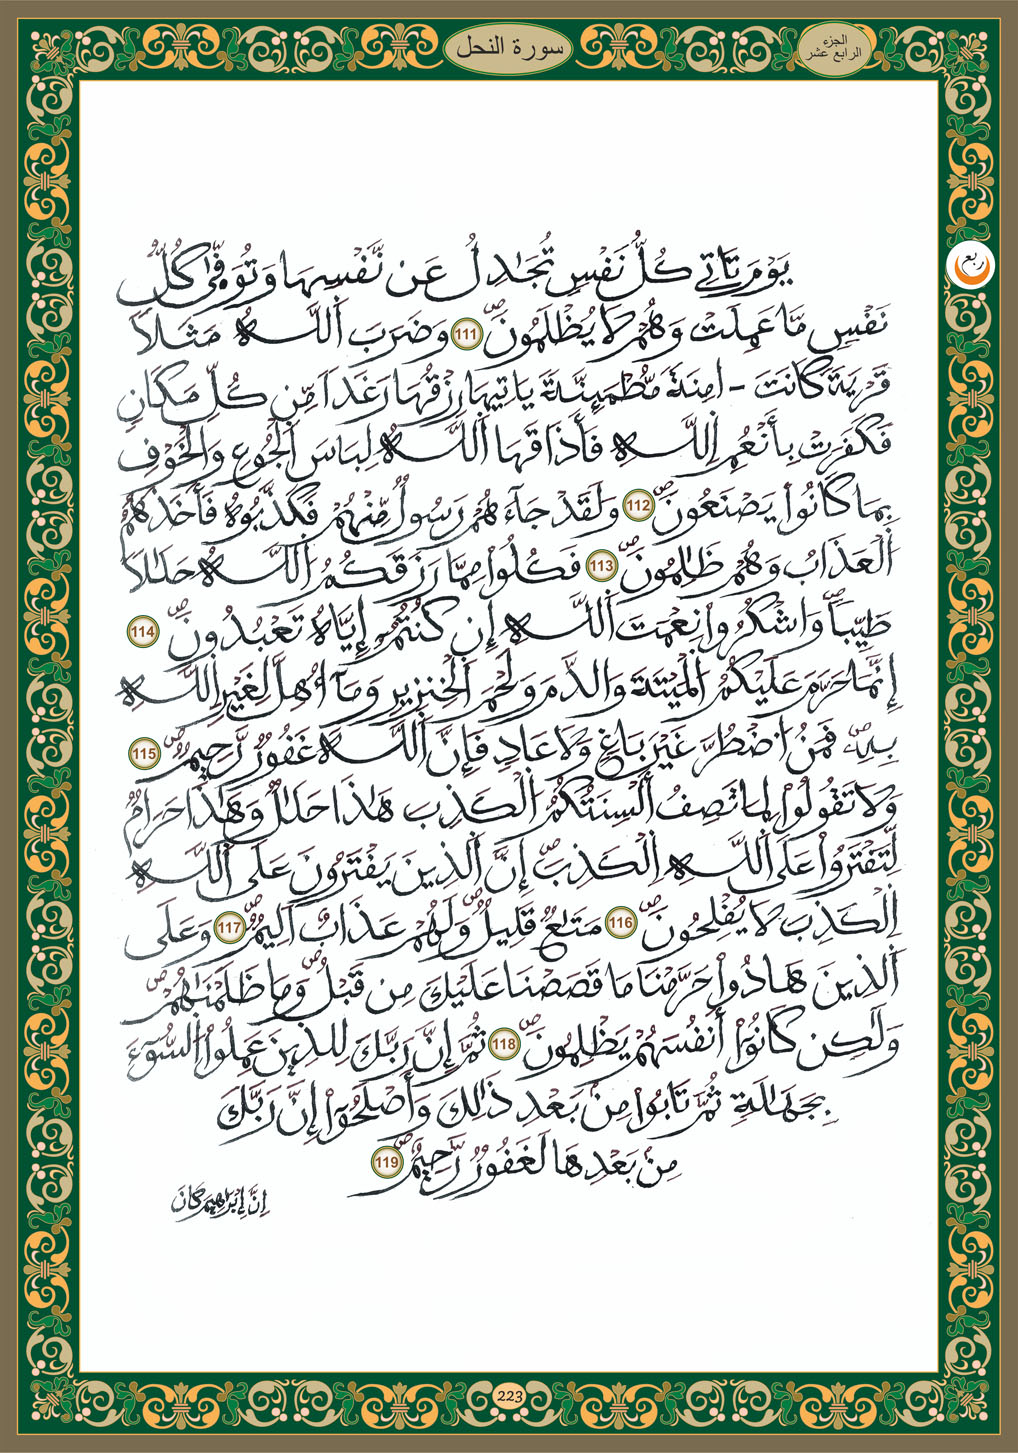 سورة النحل
الجزء
الرابع عشر
ربع
يَوْمَ تَاتِے كُلُّ نَفْسٖ تُجَٰدِلُ عَن نَّفْسِهَا وَتُوَفّ۪ىٰ كُلُّ
نَفْسٖ مَّا عَمِلَتْ وَهُمْ لَا يُظْلَمُونَۖ 111 وَضَرَبَ اَ۬للَّهُ مَثَلاٗ
قَرْيَةٗ كَانَتَ - اٰمِنَةٗ مُّطْمَئِنَّةٗ يَاتِيهَا رِزْقُهَا رَغَداٗ مِّن كُلِّ مَكَانٖ
فَكَفَرَتْ بِأَنْعُمِ اِ۬للَّهِ فَأَذَاقَهَا اَ۬للَّهُ لِبَاسَ اَ۬لْجُوعِ وَالْخَوْفِ
بِمَا كَانُواْ يَصْنَعُونَۖ 112 وَلَقَدْ جَآءَهُمْ رَسُولٞ مِّنْهُمْ فَكَذَّبُوهُ فَأَخَذَهُمُ
اُ۬لْعَذَابُ وَهُمْ ظَٰلِمُونَۖ 113 فَكُلُواْ مِمَّا رَزَقَكُمُ اُ۬للَّهُ حَلَٰلاٗ
طَيِّباٗۖ وَاشْكُرُواْ نِعْمَتَ اَ۬للَّهِ إِن كُنتُمُۥٓ إِيَّاهُ تَعْبُدُونَۖ 114
إِنَّمَا حَرَّمَ عَلَيْكُمُ اُ۬لْمَيْتَةَ وَالدَّمَ وَلَحْمَ اَ۬لْخِنزِيرِ وَمَآ أُهِلَّ لِغَيْرِ اِ۬للَّهِ
بِهِۦۖ فَمَنُ اُ۟ضْطُرَّ غَيْرَ بَاغٖ وَلَا عَادٖ فَإِنَّ اَ۬للَّهَ غَفُورٞ رَّحِيمٞۖ 115
وَلَا تَقُولُواْ لِمَا تَصِفُ أَلْسِنَتُكُمُ اُ۬لْكَذِبَ هَٰذَا حَلَٰلٞ وَهَٰذَا حَرَامٞ
لِّتَفْتَرُواْ عَلَى اَ۬للَّهِ اِ۬لْكَذِبَۖ إِنَّ اَ۬لذِينَ يَفْتَرُونَ عَلَى اَ۬للَّهِ
اِ۬لْكَذِبَ لَا يُفْلِحُونَۖ 116 مَتَٰعٞ قَلِيلٞۖ وَلَهُمْ عَذَابٌ اَلِيمٞۖ 117 وَعَلَى
اَ۬لذِينَ هَادُواْ حَرَّمْنَا مَا قَصَصْنَا عَلَيْكَ مِن قَبْلُۖ وَمَا ظَلَمْنَٰهُمْۖ
وَلَٰكِن كَانُوٓاْ أَنفُسَهُمْ يَظْلِمُونَۖ 118 ثُمَّ إِنَّ رَبَّكَ لِلذِينَ عَمِلُواْ اُ۬لسُّوٓءَ
بِجَهَٰلَةٖ ثُمَّ تَابُواْ مِنۢ بَعْدِ ذَٰلِكَ وَأَصْلَحُوٓاْ إِنَّ رَبَّكَ
مِنۢ بَعْدِهَا لَغَفُورٞ رَّحِيمٞۖ 119
إِنَّ إِبْرَٰهِيمَ كَانَ
223